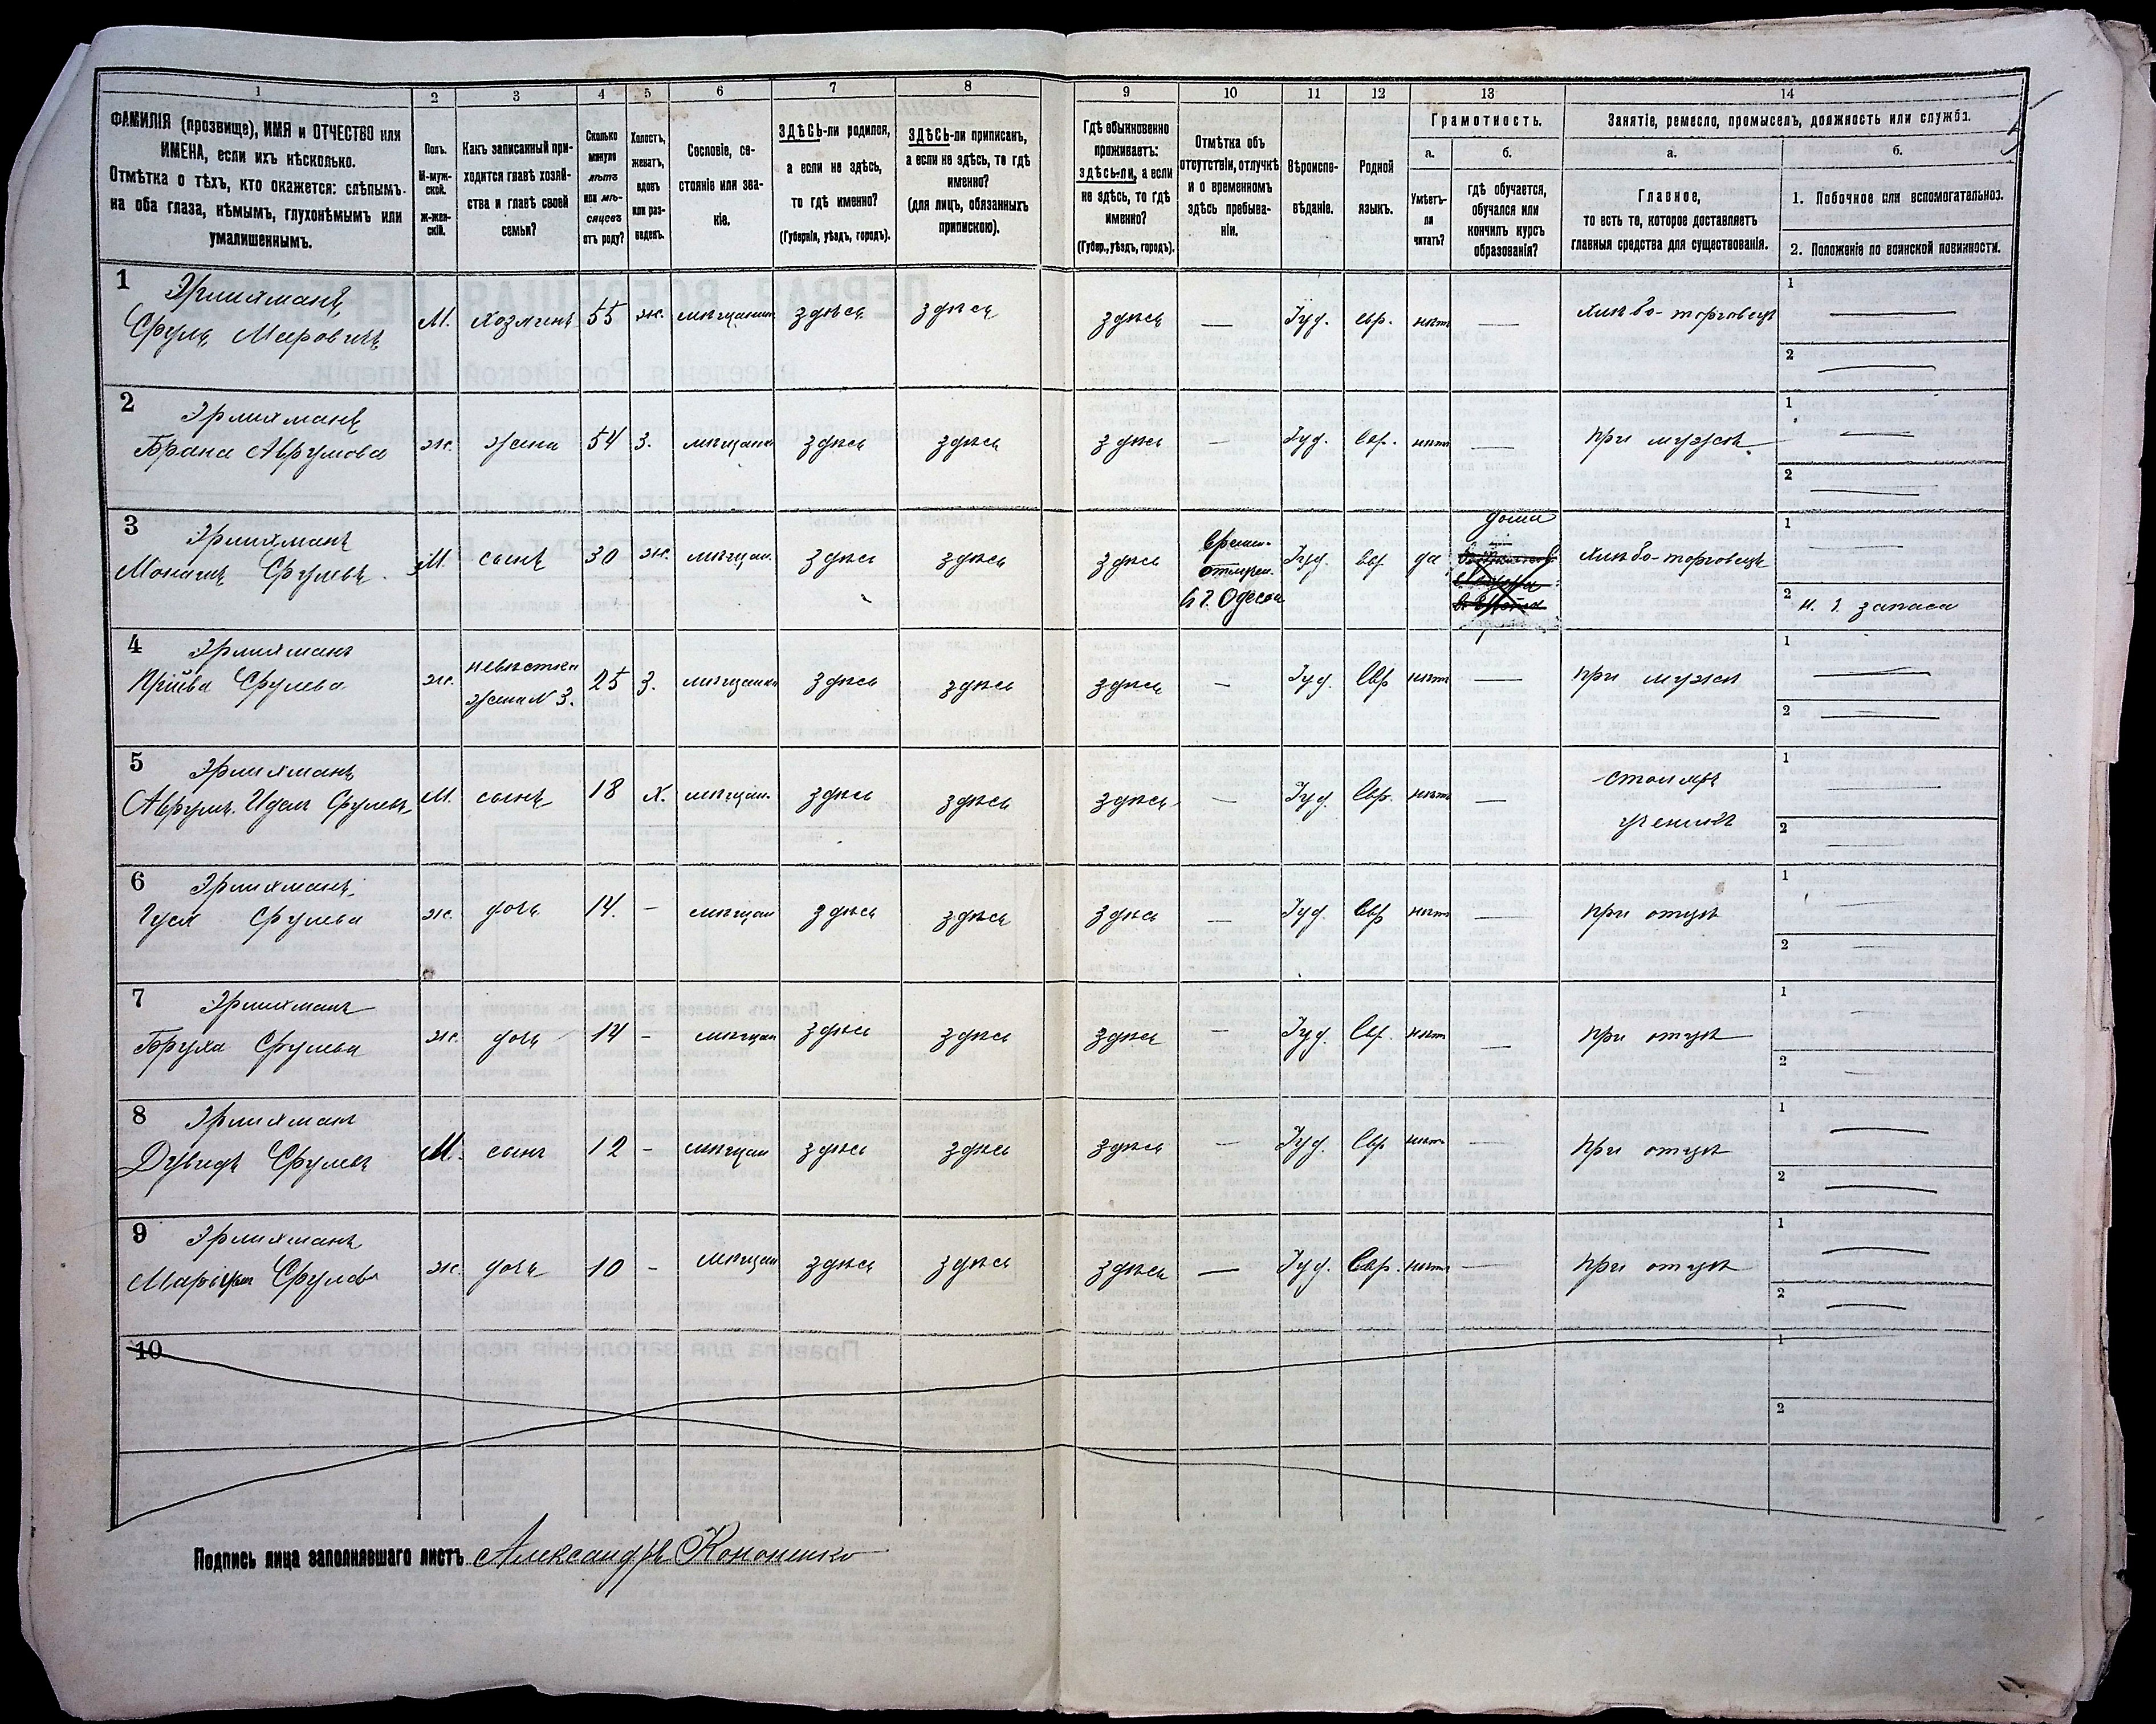 1 2 3 4 5 6 7 8 9 10 11 12 13 14
ФАМИЛІЯ (прозвище), ИМЯ и ОТЧЕСТВО или
ИМЕНА, если ихъ нѣсколько.
Отмѣтка о тѣхъ, кто окажется: слѣпымъ
на оба глаза, нѣмымъ, глухонѣмымъ или
умалишеннымъ.
Полъ.
М-муж-
ской.
Ж-жен-
скій.
Какъ записанный при-
ходится главѣ хозяй-
ства и главѣ своей
семьи?
Сколько
минуло
лѣтъ
или мѣ-
сяцевъ
отъ роду?
Холостъ,
женатъ,
вдовъ
или раз-
веденъ.
Сословіе, со-
стояніе или зва-
ніе.
ЗДѢСЬ-ли родился,
а если не здѣсь,
то гдѣ именно?
(Губернія, уѣздъ, городъ).
ЗДѢСЬ-ли приписанъ,
а если не здѣсь, то гдѣ
именно?
(для лицъ, обязанныхъ
припискою).
Гдѣ обыкновенно
проживаетъ:
ЗДѢСЬ-ли, а если
не здѣсь, то гдѣ
именно?
(Губер., уѣздъ, городъ).
Отмѣтка объ
отсутствіи, отлучкѣ
и о временномъ
здѣсь пребыва-
ніи.
Вѣроиспо-
вѣданіе.
Родной
языкъ.
Грамотность.
а.
Умѣетъ-
ли
читать?
б.
гдѣ обучается,
обучался или
кончилъ курсъ
образованія?
Занятіе, ремесло, промыселъ, должность или служба.
а.
Главное,
то есть то, которое доставляетъ
главныя средства для существованія.
б.
1. Побочное или вспомогательное.
2. Положеніе по воинской повинности.
1 Эрлихманъ
Сруль Мееровичъ М. хозяинъ 55 ж. мѣщанинъ здѣсь здѣсь здѣсь — Іуд. евр. нѣтъ — хлѣбо-торговецъ 1 — 2 —
2 Эрлихманъ
Брана Аврумова ж. жена 54 З. мѣщанка здѣсь здѣсь здѣсь — Іуд. Евр. нѣтъ — при мужѣ 1 — 2 —
3 Эрлихманъ
Монишъ Срулевъ М. сынъ 30 ж. мѣщан. здѣсь здѣсь здѣсь Времен. отлучен. в г. Одесса Іуд. Евр да дома хлѣбо-торговецъ 1 — 2 запаса
4 Эрлихманъ
Срулева ж. невѣстка
жена N 3. 25 З. мѣщанка здѣсь здѣсь здѣсь — Іуд. Евр нѣтъ — при мужѣ 1 — 2 —
5 Эрлихманъ
Аврумъ Идель Срулевъ М. сынъ 18 Х. мѣщан. здѣсь здѣсь здѣсь — Іуд. Евр. нѣтъ — столяръ
ученикъ 1 — 2 —
6 Эрлихманъ
Срулева ж. дочь 14. — мѣщан здѣсь здѣсь здѣсь — Іуд. Евр нѣтъ — при отцѣ 1 — 2 —
7 Эрлихманъ
Бруха Срулева ж. дочь 14 - мѣщан здѣсь здѣсь здѣсь — Іуд. Евр. нѣтъ — при отцѣ 1 — 2 —
8 Эрлихманъ
Дувидъ Срулевъ М. сынъ 12 - мѣщан здѣсь здѣсь здѣсь — Іуд. Евр нѣтъ — при отцѣ 1 — 2 —
9 Эрлихманъ
Срулева ж. дочь 10 - мѣщан здѣсь здѣсь здѣсь — Іуд. Евр. нѣтъ — при отцѣ 1 — 2 —
10 1 2
Подпись лица заполнявшаго листъ Александръ Кононенко